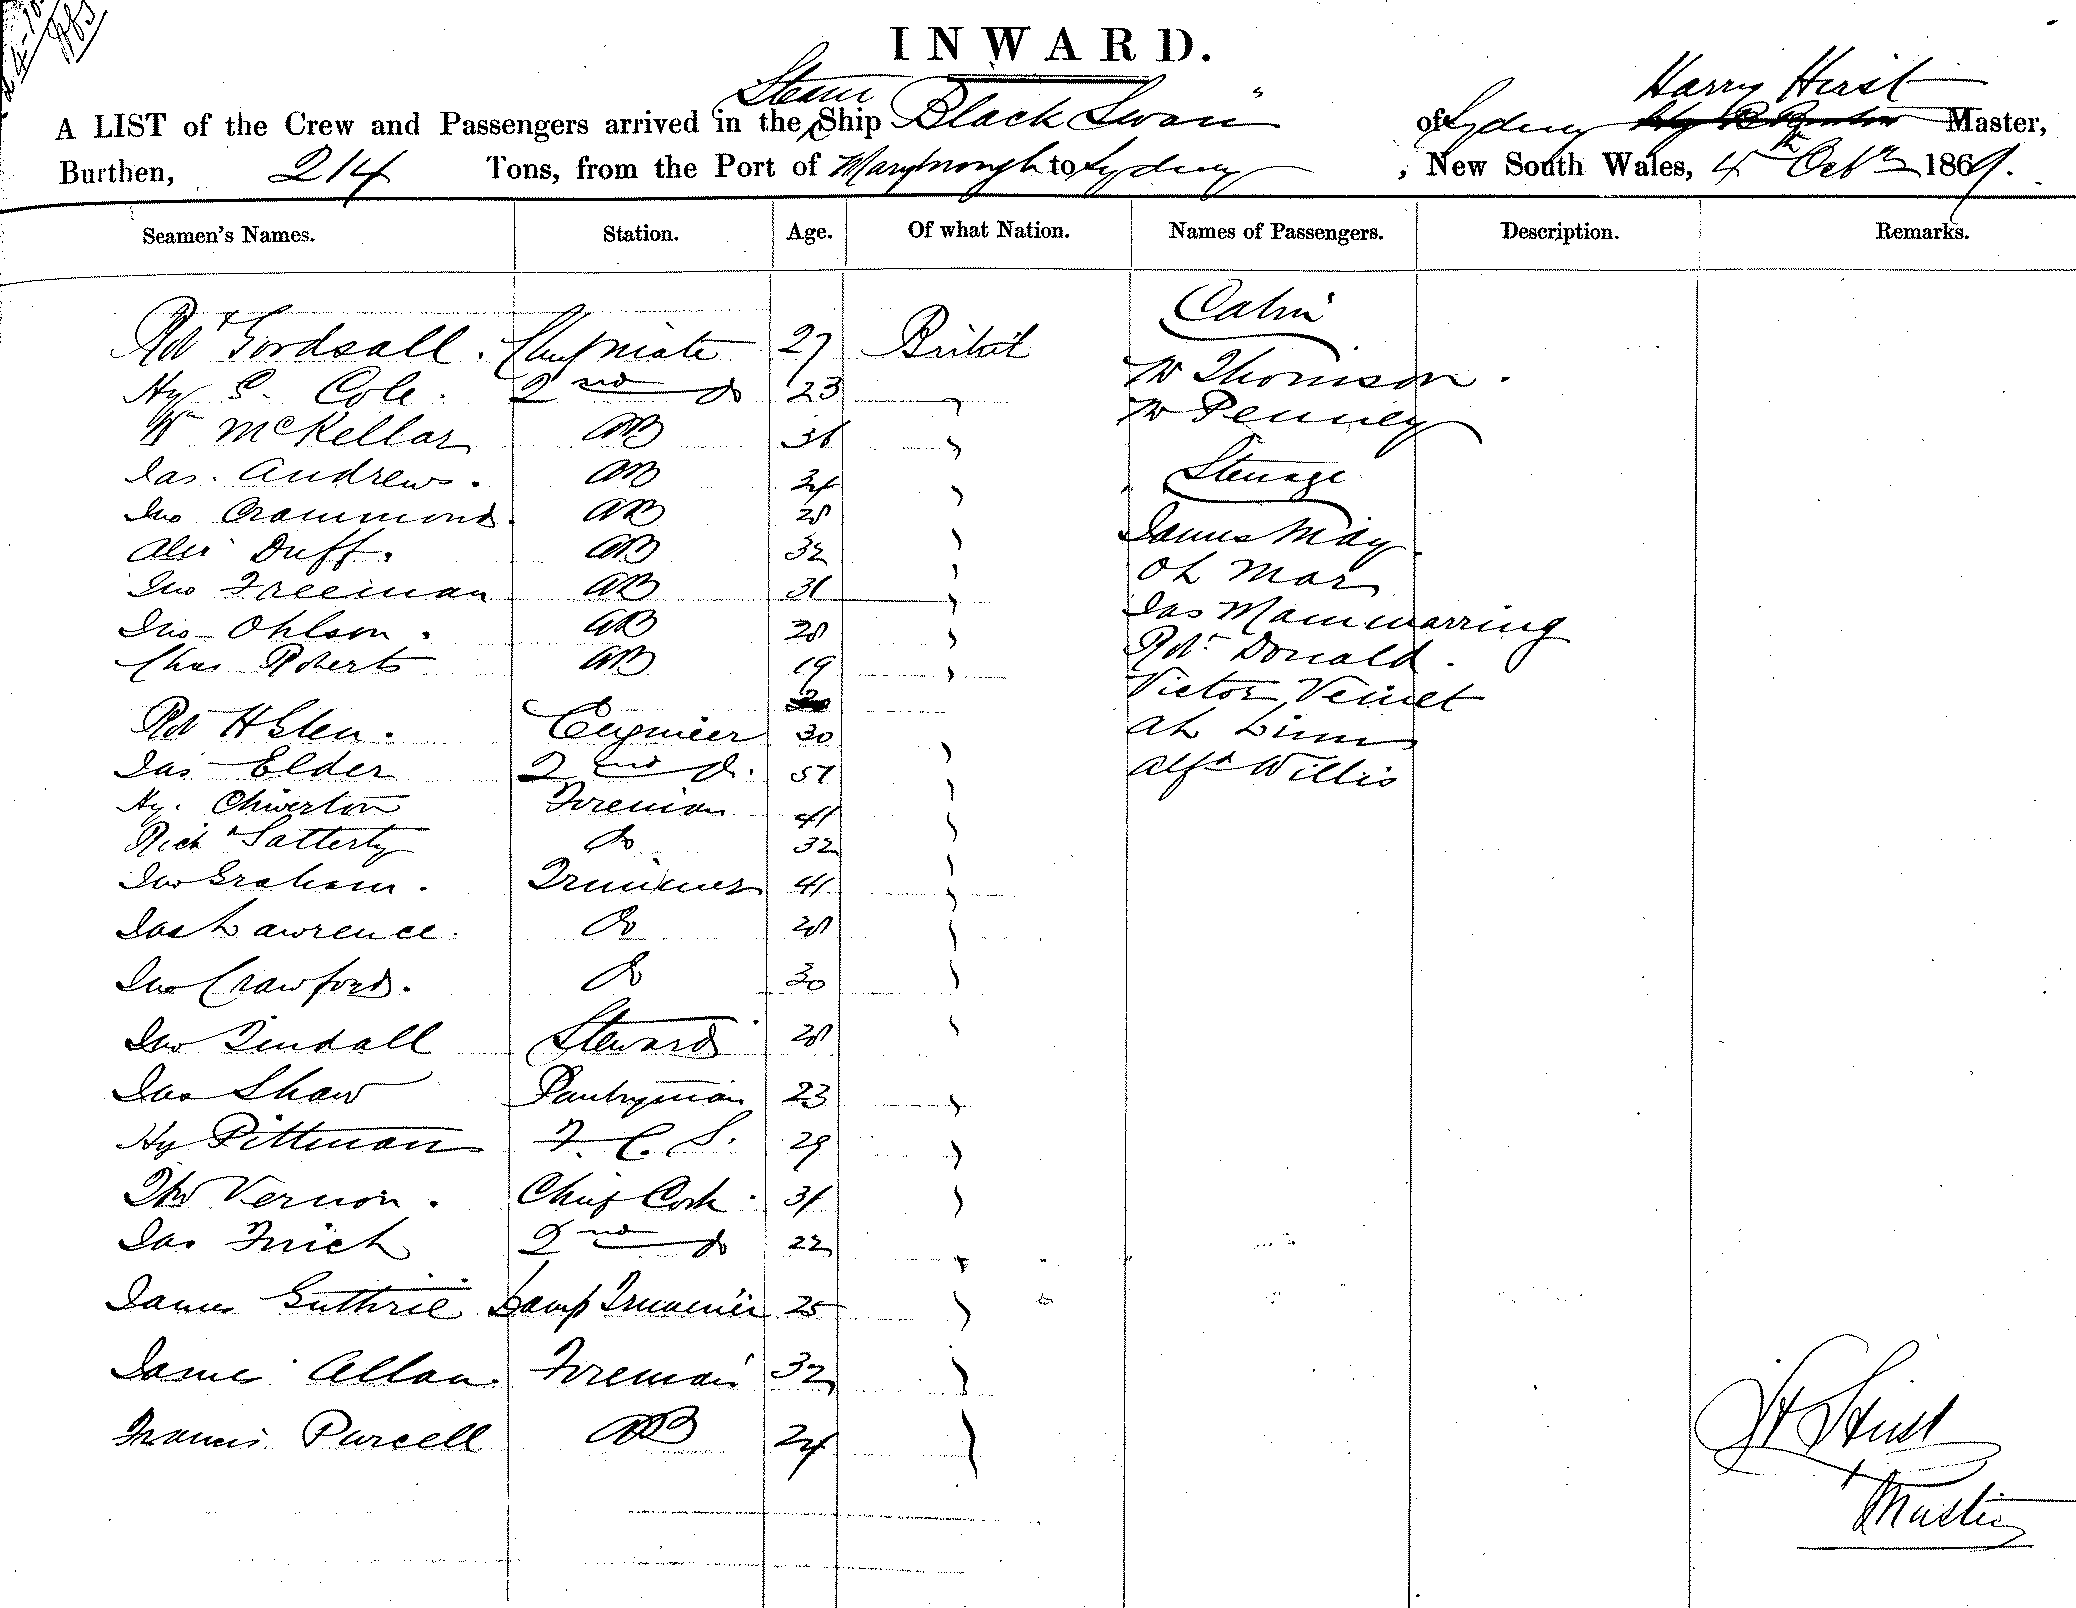 INWARD.
A LIST of the Crew and Passengers arrived in the Steam Ship "Black Swan" of Sydney Harry Hirst Master,
Burthen, 214 Tons, from the Port of Maryborough to Sydney, New South Wales, 4th Octbr 1869.
Seamen's Names. Station. Age. Of what Nation. Names of Passengers. Description. Remarks.
Cabin
Robt Gordsall. Chief mate 27 British
W Thomson.
Hy S. Cole. 2nd do 23 "
W Penney
Wm McKellar AB 36 "
Jas. Andrews. AB 24 "
Steerage
Jno Crammond. AB 28 "
James May
Alex Duff. AB 32 "
Ah Mar
Jno Freeman AB 31 "
Jas Mainwarring
Jno Ohlson. AB 28 "
Robt Donald.
Chas Roberts AB 19 "
Victor
Rob H Glen. Engineer 30 "
Ah
Jas Elder 2nd do. 51 "
Alfd Willis
Hy. Chiverton Fireman 41 "
Richd do 32 "
Jno Graham. Trimmer 41 "
Jas Lawrence. do 28 "
Jno Crawford. do 30 "
Jno Tindall Steward 28 "
Jas Shaw Pantryman 23 "
Hy Pittman F. C. S. 29 "
Thos Vernon. Chief Cook. 31 "
Jas 2nd do 22 "
James Guthrie Lamp Trimmer 25 "
James Allan. Fireman 32 "
Francis Purcell AB 24 "
H Hirst
Master